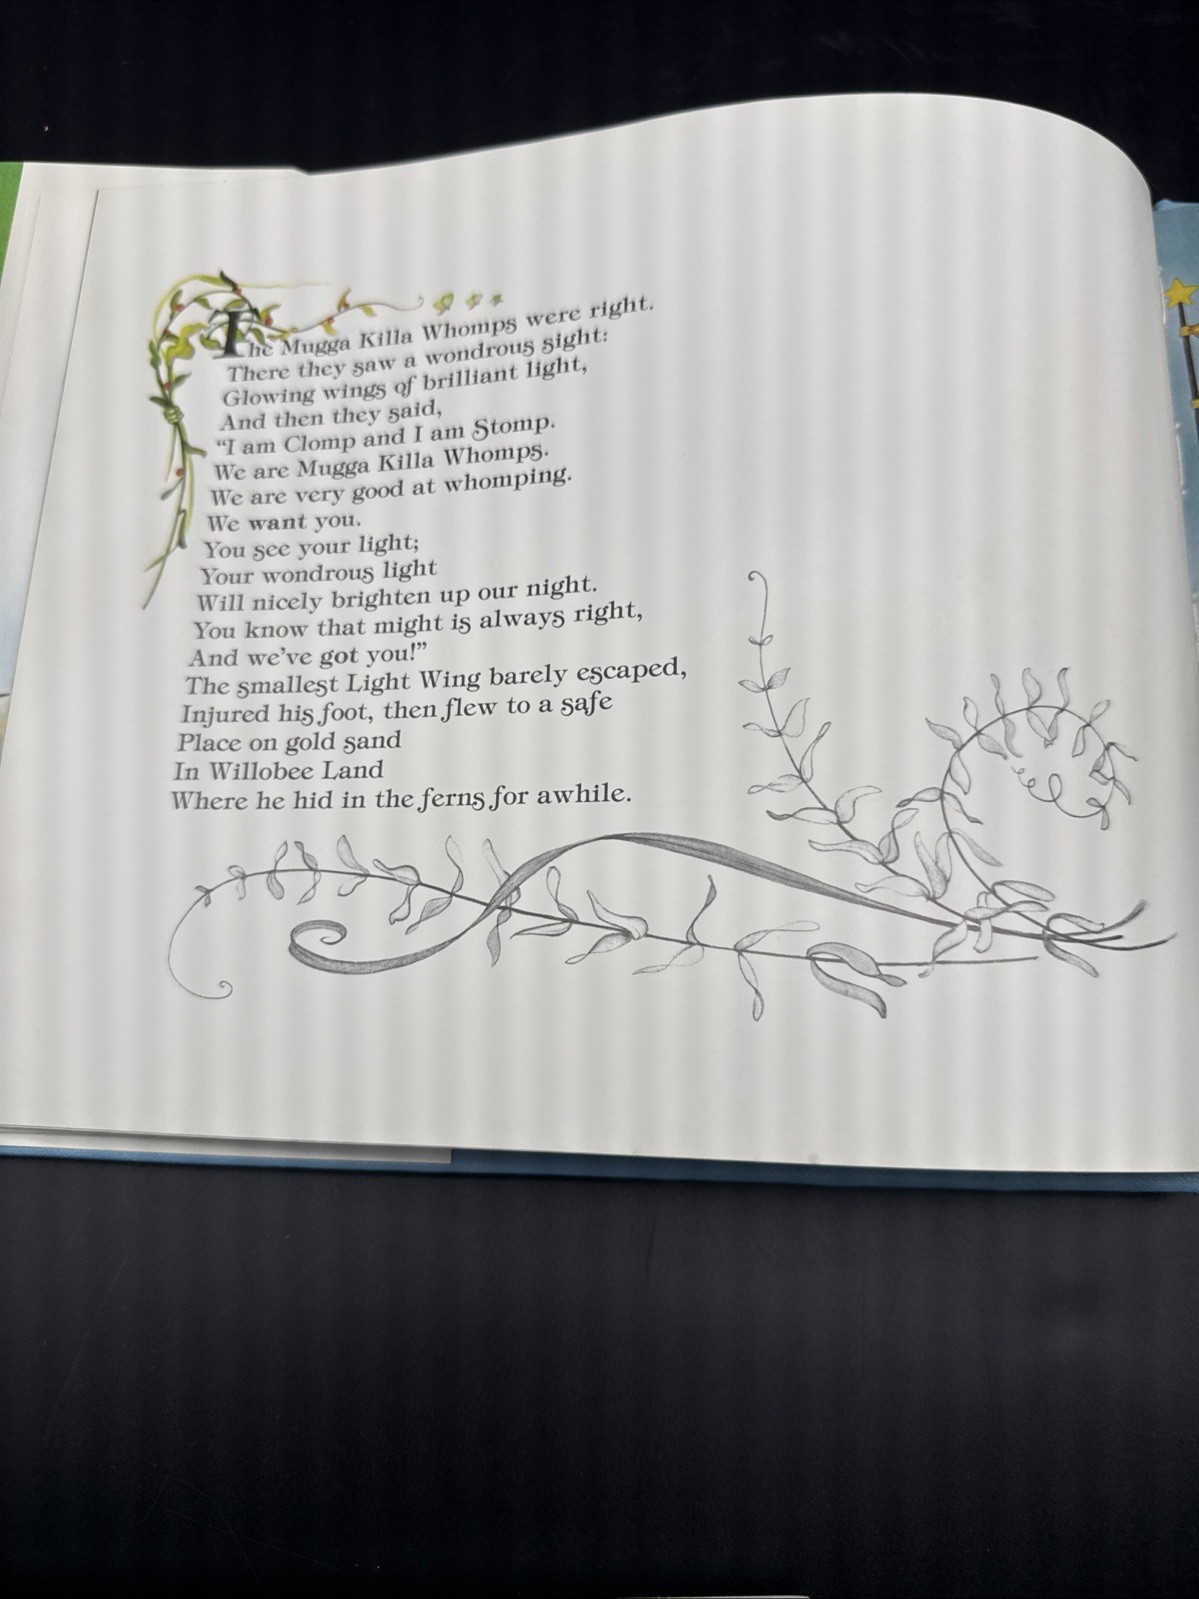 The Mugga Killa Whomps were right.
There they saw a wondrous sight:
Glowing wings of brilliant light,
And then they said,
“I am Clomp and I am Stomp.
We are Mugga Killa Whomps.
We are very good at whomping.
We want you.
You see your light;
Your wondrous light
Will nicely brighten up our night.
You know that might is always right,
And we’ve got you!”
The smallest Light Wing barely escaped,
Injured his foot, then flew to a safe
Place on gold sand
In Willobee Land
Where he hid in the ferns for awhile.